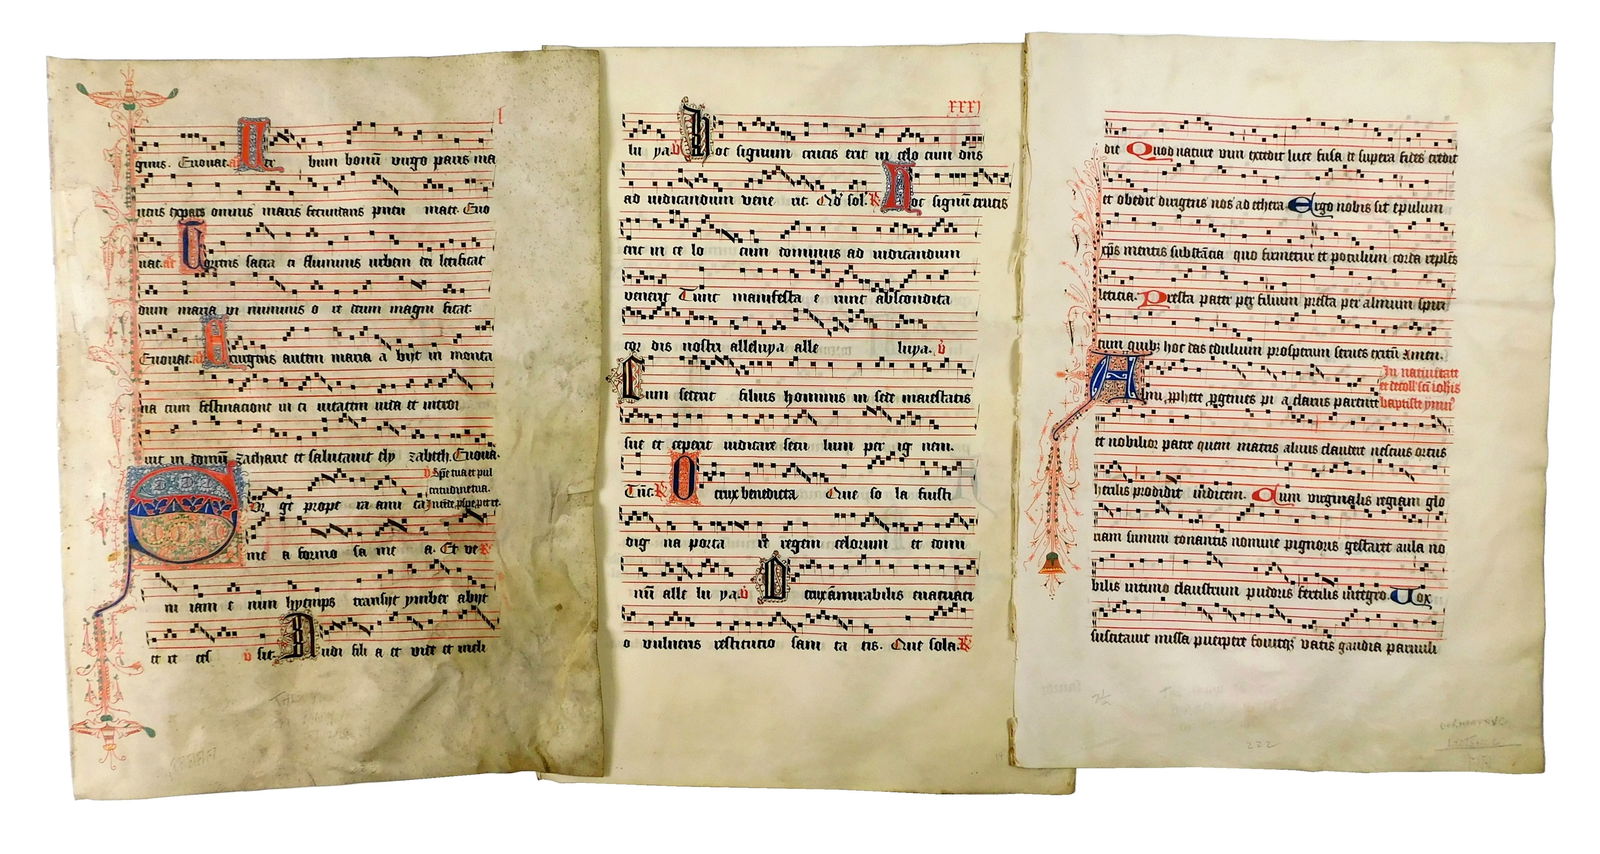 l
gnus. Euouae. an Ver bum bonū virgo paris ma
nens expars omnis maris fecundans pneu mate. Euo
uae. an Cortens sacra ti fluminis urbem dei letificat
dum maria in numinis o re deum magni ficat.
Euouae. an Exurgens autem maria a biit in monta
na cum festinacione in ci uitatem iuda et introi
uit in domū zacharie et salutauit ely zabeth. Euoua.
v Spē tua et pul
critudine tua.
Intēde. pspē. pcede.
Sur ge prope ra ami ca
me a formo sa me a. Et ve R
ni iam e nim hyemps transiit ymber abijt
et re ces v sit. Audi fili a et vide et incli
xxxj
lu ya. v Hoc signum crucis erit in celo cum dn̄s
ad iudicandum vene rit. Qd̄ sol. R Hoc signū crucis
erit in ce lo cum dominus ad iudicandum
venerit Tunc manifesta e runt abscondita
cor dis nostri alleluya alle luya. v
Cum sederit filius hominis in sede maiestatis
sue et ceperit iudicare secu lum per ig nem.
Tūc. R O crux benedicta Que so la fuisti
dig na porta re regem celorum et domi
nū alle lu ya. v O crux amirabilis euacuaci
o vulneris restitucio sani ta tis. Que sola. R
dit Quod nature vim excedit luce fusa et supera fides credit
et obedit dirigens nos ad ethera Ergo nobis sit epulum
cp̄s mentis substācia quo firmetur et poculum corda replēs
leticia. Presta pater per filium presta per almum spiri
tum quib; hoc das edulium prosperum serues exitū Amen.
In natiuitate
et decoll' scī iohīs
baptiste ymn'
Almi pphete pgenies pi a clarus parente
et nobilior patre quem matris aluus claudere nescius ortus
herilis prodidit indicem. Cum virginalis regiam glo
riam summi tonantis nomine pignoris gestaret aula no
bilis intimo claustrum pudoris fertilis integro. Uox
suscitauit missa puerpere fouitqȝ vatis gaudia paruuli
222